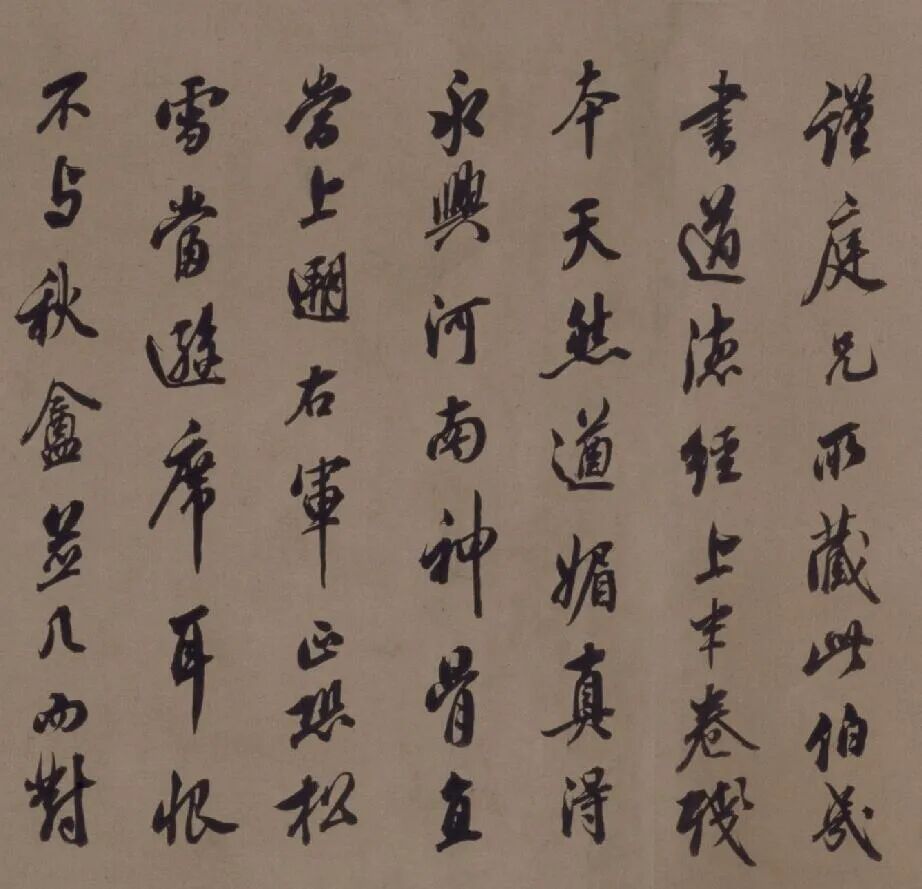 謹庭兄所藏此伯幾
書道德經上半卷殘
本天然遒媚真得
永興河南神骨直
當上遡右軍正恐松
雪當避席耳恨
不与秋盦並几而對